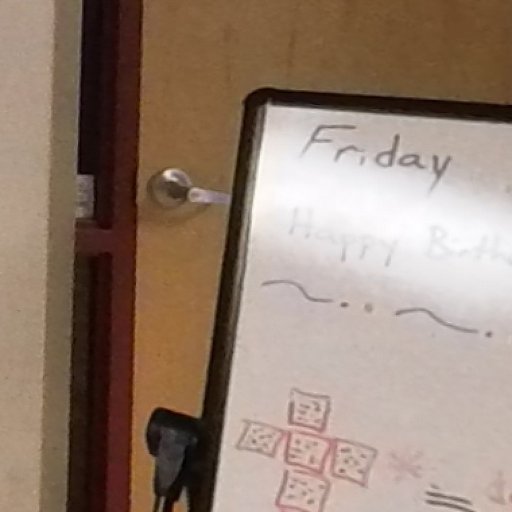 Friday
Happy Birth
~.. ~.